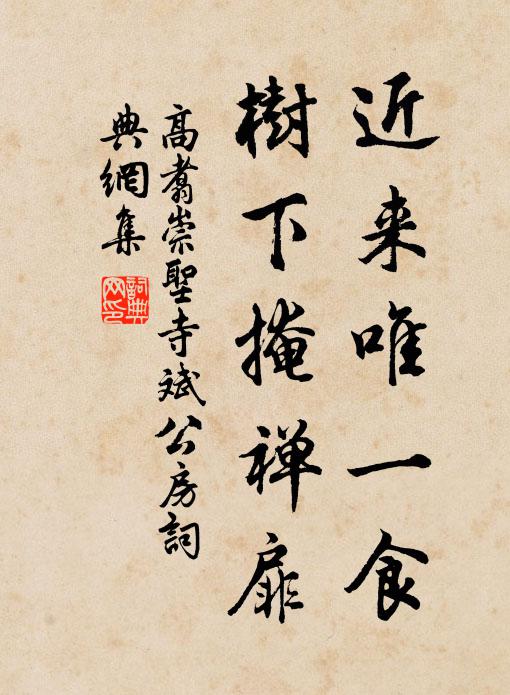 近来唯一食
樹下掩禅扉
高翥崇聖寺斌公房詞
典網集
詞典
网印